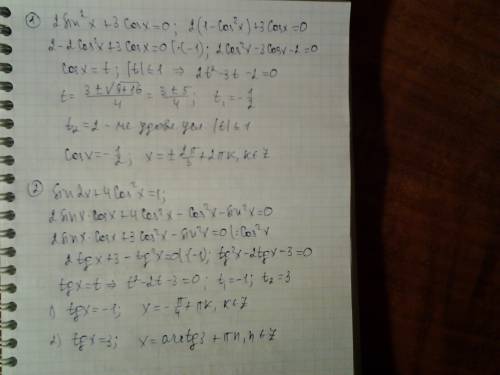 ① 2sin²x + 3cosx=0; 2(1-cos²x)+3cosx=0
2-2cos²x+3cosx=0 |·(-1); 2cos²x-3cosx-2=0
cosx=t; |t|≤1 ⇒ 2t²-3t-2=0
t = (3±√(9+16))/4 = (3±5)/4; t₁=-1/2
t₂=2 - не удовл усл |t|≤1
cosx=-1/2; x=±2π/3+2πk, k∈Z
② sin2x+4cos²x=1;
2sinx·cosx+4cos²x-cos²x-sin²x=0
2sinx·cosx+3cos²x-sin²x=0 |:cos²x
2tgx+3-tg²x=0 |·(-1); tg²x-2tgx-3=0
tgx=t ⇒ t²-2t-3=0; t₁=-1; t₂=3
1) tgx=-1; x=-π/4+πk, k∈Z
2) tgx=3; x=arctg3+πn, n∈Z